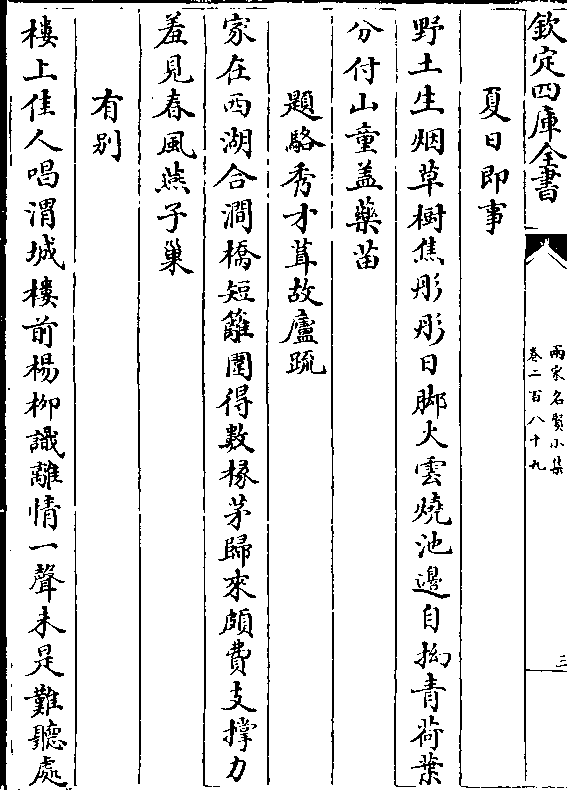 欽定四庫全書
兩宋名賢小集
卷二百八十九
三
夏日即事
野土生烟草樹焦彤彤日脚火雲燒池邊自拗青荷葉
分付山童盖藥苗
題駱秀才葺故廬疏
家在西湖合澗橋短籬圍得數椽茅歸來頗費支撐力
羞見春風燕子巢
有别
樓上佳人唱渭城樓前楊栁識離情一聲未是難聽處